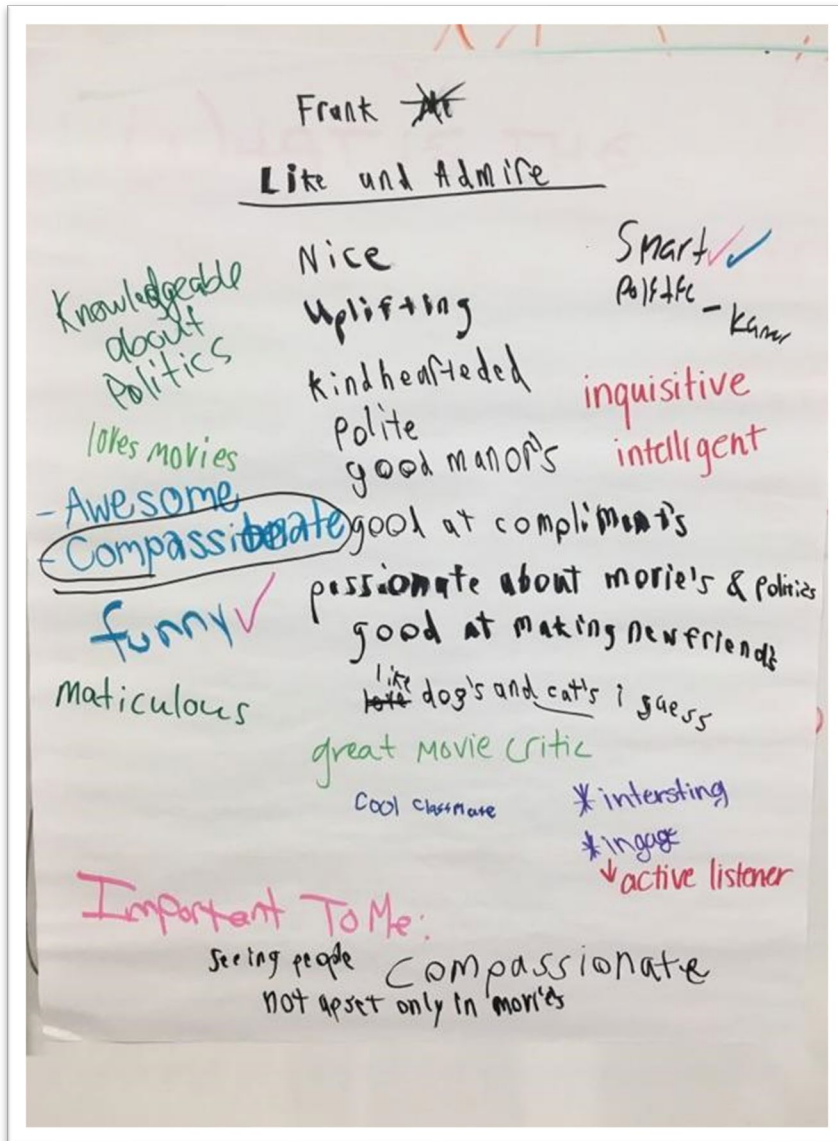 Frank
Like and Admire
Knowledgeable
about
Politics
loves movies
- Awesome
- Compassionate
funny
maticulous
Nice
Uplifting
kindhearteded
Polite
good manor's
good at compliment's
passionate about movie's & politics
good at making new friends
like
dog's and cat's i guess
great movie critic
Cool classmate
Smart
inquisitive
intelligent
* intersting
* ingage
active listener
Important To Me:
seeing people
not upset only in movies
Compassionate